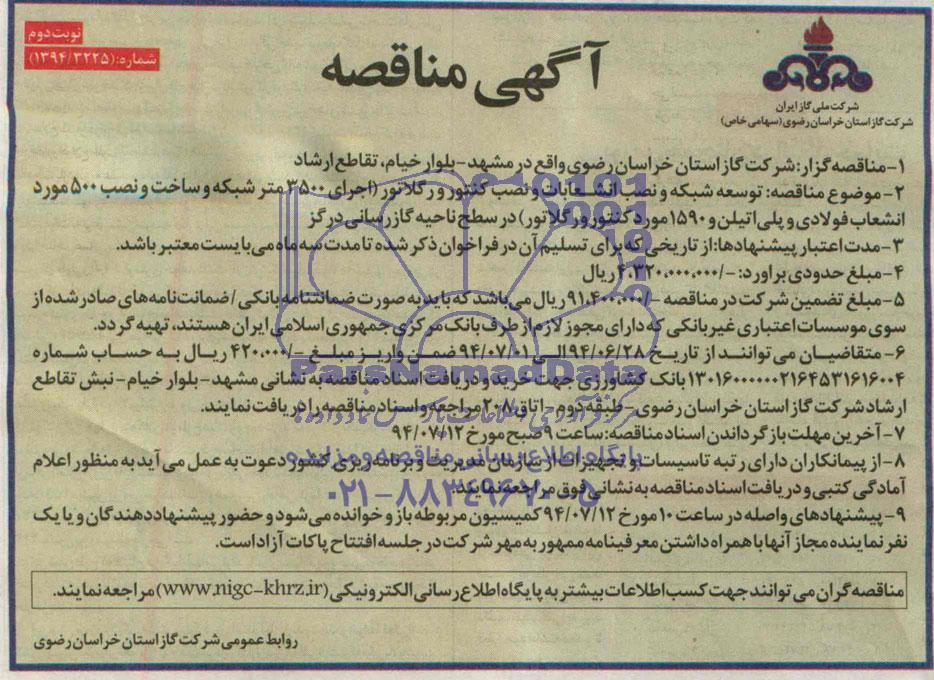 نوبت دوم
شماره: (۱۳۹۴/۳۲۲۵)
آگهی مناقصه
شرکت ملی گاز ایران
شرکت گاز استان خراسان رضوی (سهامی خاص)
۱- مناقصه گزار: شرکت گاز استان خراسان رضوی واقع در مشهد- بلوار خیام، تقاطع ارشاد
۲- موضوع مناقصه: توسعه شبکه و نصب انشعابات و نصب کنتور و رگلاتور (اجرای ۳۵۰۰ متر شبکه و ساخت و نصب ۵۰۰ مورد
انشعاب فولادی و پلی اتیلن و ۱۵۹۰ مورد کنتور و رگلاتور) در سطح ناحیه گازرسانی درگز
۳- مدت اعتبار پیشنهادها: از تاریخی که برای تسلیم آن در فراخوان ذکر شده تا مدت سه ماه می بایست معتبر باشد.
۴- مبلغ حدودی براورد: -/۴،۳۲۰،۰۰۰،۰۰۰ ریال
۵- مبلغ تضمین شرکت در مناقصه -/۹۱،۴۰۰،۰۰۰ ریال می باشد که باید به صورت ضمانتنامه بانکی / ضمانت نامه های صادر شده از
سوی موسسات اعتباری غیربانکی که دارای مجوز لازم از طرف بانک مرکزی جمهوری اسلامی ایران هستند، تهیه گردد.
۶- متقاضیان می توانند از تاریخ ۹۴/۰۶/۲۸ الی ۹۴/۰۷/۰۱ ضمن واریز مبلغ -/۴۲۰،۰۰۰ ریال به حساب شماره
۱۳۰۱۶۰۰۰۰۰۰۲۱۶۴۵۳۱۶۱۶۰۰۴ بانک کشاورزی جهت خرید و دریافت اسناد مناقصه به نشانی مشهد- بلوار خیام- نبش تقاطع
ارشاد شرکت گاز استان خراسان رضوی - طبقه دوم - اتاق ۲۰۸ مراجعه و اسناد مناقصه را دریافت نمایند.
۷- آخرین مهلت بازگرداندن اسناد مناقصه: ساعت ۹ صبح مورخ ۹۴/۰۷/۱۲
۸- از پیمانکاران دارای رتبه تاسیسات و تجهیزات از سازمان مدیریت و برنامه ریزی کشور دعوت به عمل می آید به منظور اعلام
آمادگی کتبی و دریافت اسناد مناقصه به نشانی فوق مراجعه نمایند.
۹- پیشنهادهای واصله در ساعت ۱۰ مورخ ۹۴/۰۷/۱۲ کمیسیون مربوطه باز و خوانده می شود و حضور پیشنهاددهندگان و یا یک
نفر نماینده مجاز آنها با همراه داشتن معرفینامه ممهور به مهر شرکت در جلسه افتتاح پاکات آزاد است.
مناقصه گران می توانند جهت کسب اطلاعات بیشتر به پایگاه اطلاع رسانی الکترونیکی (www.nigc-khrz.ir) مراجعه نمایند.
روابط عمومی شرکت گاز استان خراسان رضوی
ParsNamadData
پایگاه اطلاع رسانی مناقصه و مزایده
۰۲۱-۸۸۳۴۹۶۷۰-۵